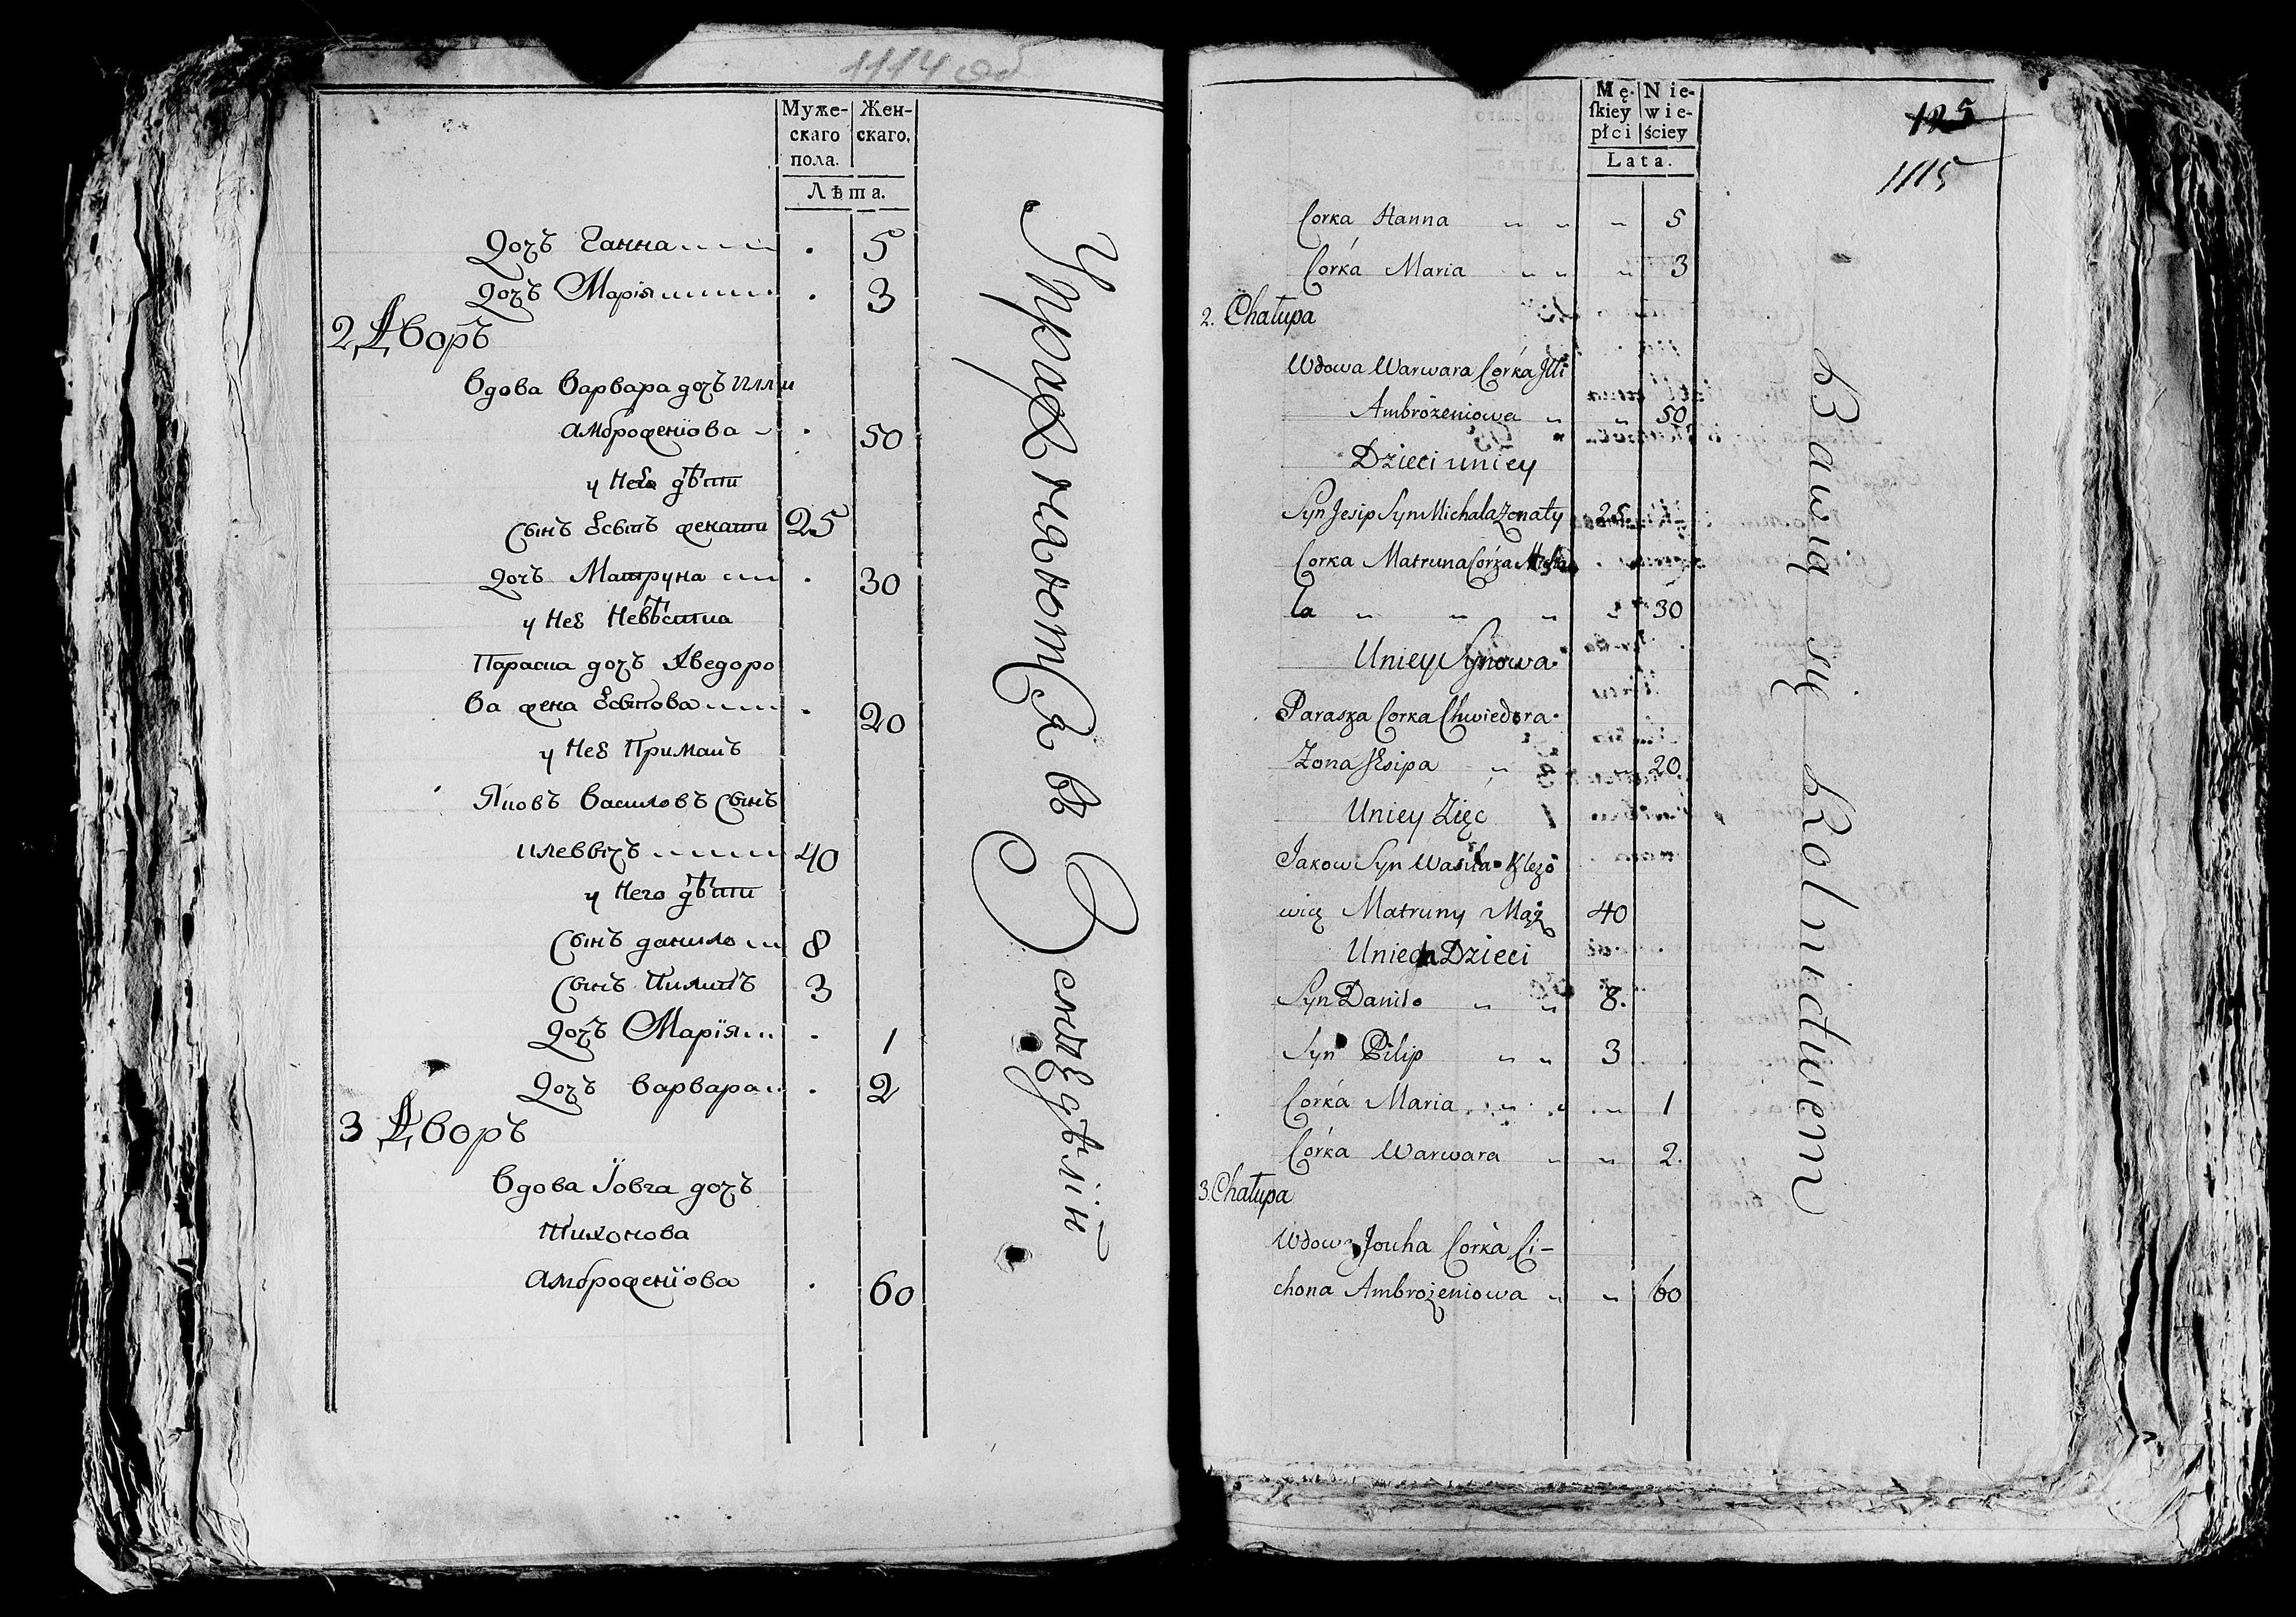 1114 об
Муже- Жен-
скаго скаго.
пола.
Лѣта.
Дочъ Ганна . 5
Дочъ Марія . 3
2 Дворъ
Вдова Варвара дочъ Илли
Амброженiова . 50
у Нее дѣти
Сынъ Есыпъ женати 25
Дочъ Матруна . 30
у Нее Невѣстка
Параска дочъ Хведоро
ва жена Есыпова . 20
у Нее Примакъ
Яковъ Василовъ Сынъ
40
у Него дѣти
Сынъ данило 8
Сынъ Пилипъ 3
Дочъ Марїя . 1
Дочъ варвара . 2
3 Дворъ
Вдова Їовга дочъ
Тихонова
Амброженїова . 60
Упражняются въ Земледѣліи
Mę- Nie-
ſkiey wie-
płci ściey
Lata.
125
1115
Corka Hanna " " " 5
Córka Maria " " " 3
2. Chałupa
Wdowa Warwara Córka Illi
Ambrożeniowa " " 50
Dzieci uniey
Syn Jesip Syn Michala Zonaty 25
Corka Matruna Córka Micha
la " " " " 30
Uniey Synowa
Paraska Corka Chwiedora
Zona Jesipa " " 20
Uniey Zięć
Jakow Syn Wasila
wicz Matruny Mąż 40
Uniego Dzieci
Syn Daniło " " 8.
Syn Pilip " " 3
Córka Maria " " " 1
Córka Warwara " " 2.
3. Chałupa
Wdowa Jouha Córka Ci-
chona Ambrożeniowa " " 60
bZawią się Rolnictwem